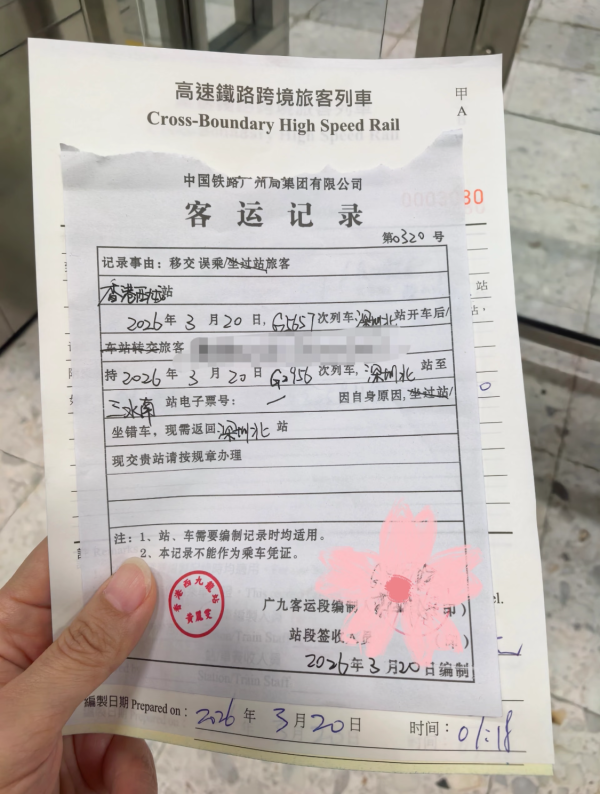 高速鐵路跨境旅客列車
Cross-Boundary High Speed Rail
甲
A
中国铁路广州局集团有限公司
客运记录
第0320号
记录事由：移交误乘/坐过站旅客
香港西九站
2026年3月20日，G5657次列车，深圳北站开车后/
车站转交旅客
持2026年3月20日G2956次列车，深圳北站至
三水南站电子票号：一 因自身原因，坐过站/
坐错车，现需返回深圳北站
现交贵站请按规章办理
注：1、站、车需要编制记录时均适用。
2、本记录不能作为乘车凭证。
香港西九龍站
广九客运段编制
印）
站段签收
（印）
2026年3月20日编制
編製日期 Prepared on : 2026年3月20日 时间：01:18